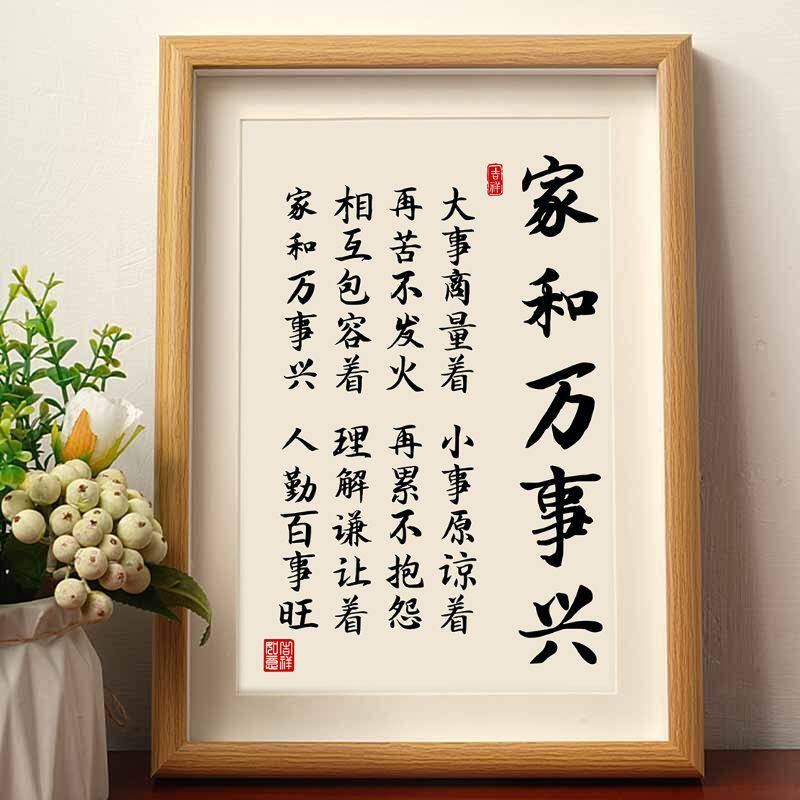 家和万事兴
吉祥
大事商量着 小事原谅着
再苦不发火 再累不抱怨
相互包容着 理解谦让着
家和万事兴 人勤百事旺
吉祥如意